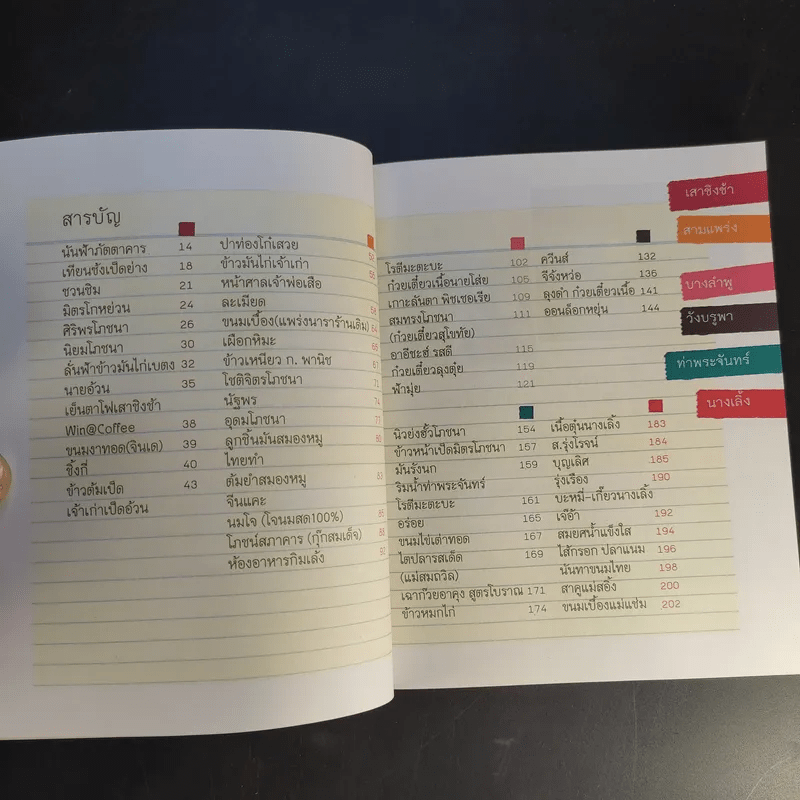 สารบัญ
นันฟ้าภัตตาคาร 14
เทียนซ้งเป็ดย่าง 18
ชวนชิม 21
มิตรโกหย่วน 24
ศิริพรโภชนา 26
นิยมโภชนา 30
ลั่นฟ้าข้าวมันไก่เบตง 32
นายอ้วน 35
เย็นตาโฟเสาชิงช้า
Win@Coffee 38
ขนมงาทอด(จินเด) 39
ชิ้งกี่ 40
ข้าวต้มเป็ด 43
เจ้าเก่าเป็ดอ้วน
ปาท่องโก๋เสวย
ข้าวมันไก่เจ้าเก่า
หน้าศาลเจ้าพ่อเสือ
ละเมียด
ขนมเบื้อง(แพร่งนาราร้านเดิม)
เผือกหิมะ
ข้าวเหนียว ก. พานิช
โชติจิตรโภชนา
นัฐพร
อุดมโภชนา 77
ลูกชิ้นมันสมองหมู
ไทยทำ
ต้มยำสมองหมู
จีนแคะ
นมโจ (โจนมสด100%)
โภชน์สภาคาร (กุ๊กสมเด็จ)
ห้องอาหารกิมเล้ง
โรตีมะตะบะ 102
ก๋วยเตี๋ยวเนื้อนายโส่ย 105
เกาะลันตา พิชเชอเรีย 109
สมทรงโภชนา 111
(ก๋วยเตี๋ยวสุโขทัย)
อาอีซะฮ์ รสดี 115
ก๋วยเตี๋ยวลุงตุ๋ย 119
ฟ้ามุ่ย 121
ควีนส์ 132
จีจังหว่อ 136
ลุงดำ ก๋วยเตี๋ยวเนื้อ 141
ออนล็อกหยุ่น 144
นิวย่งฮั้วโภชนา 154
ข้าวหน้าเป็ดมิตรโภชนา 157
มันรังนก 159
ริมน้ำท่าพระจันทร์
โรตีมะตะบะ 161
อร่อย 165
ขนมไข่เต่าทอด 167
ไตปลารสเด็ด 169
(แม่สมถวิล)
เฉาก๊วยอาคุง สูตรโบราณ 171
ข้าวหมกไก่ 174
เนื้อตุ๋นนางเลิ้ง 183
ส.รุ่งโรจน์ 184
บุญเลิศ 185
รุ่งเรือง 190
บะหมี่-เกี๊ยวนางเลิ้ง
เจ๊อ้า 192
สมยศน้ำแข็งใส 194
ไส้กรอก ปลาแนม 196
นันทาขนมไทย 198
สาคูแม่สอิ้ง 200
ขนมเบื้องแม่แช่ม 202
เสาชิงช้า
สามแพร่ง
บางลำพู
วังบรูพา
ท่าพระจันทร์
นางเลิ้ง